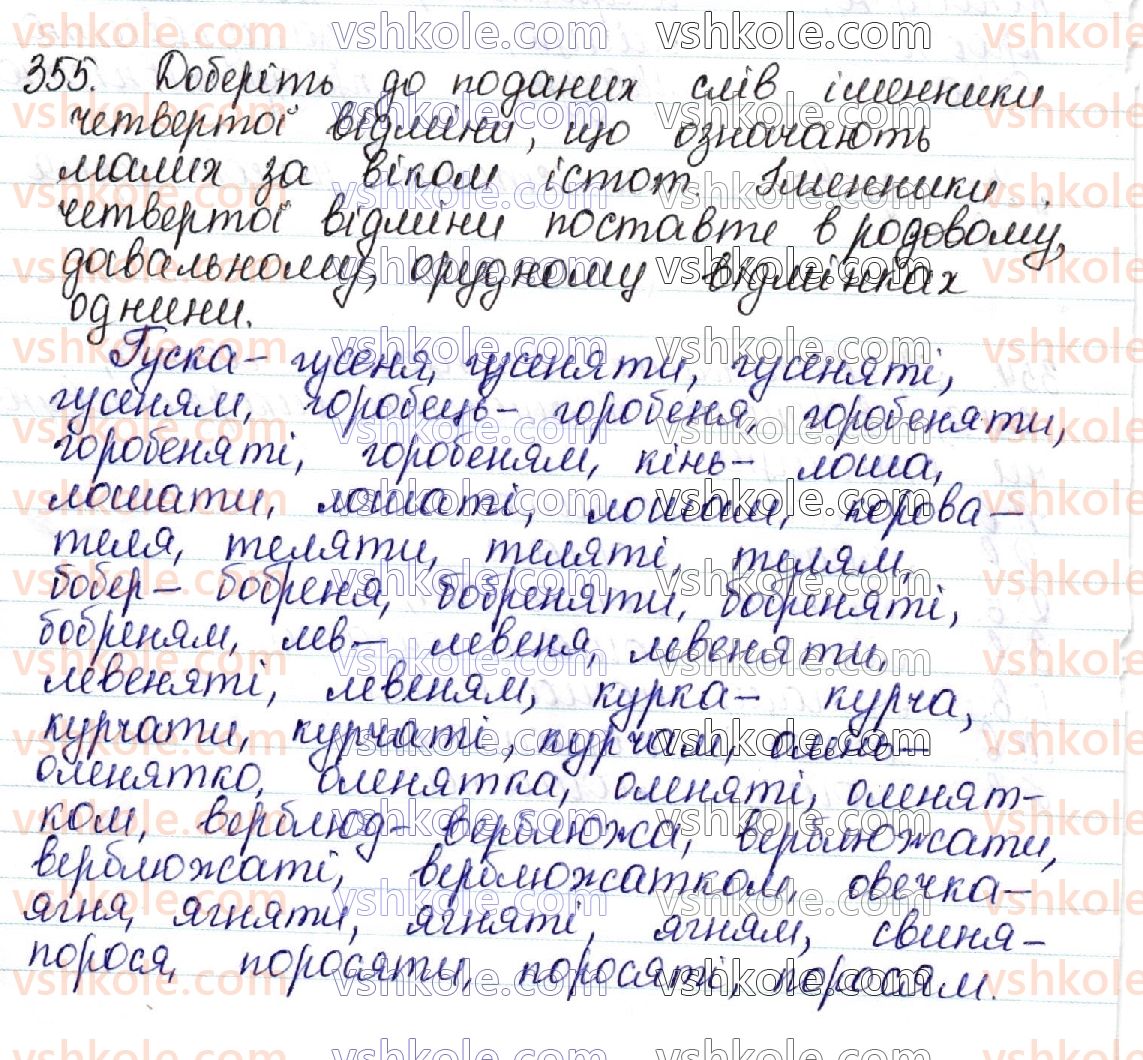 355. Доберіть до поданих слів іменники
четвертої відміни, що означають
малих за віком істот. Іменники
четвертої відміни поставте в родовому,
давальному, орудному відмінках
однини.
Гуска – гусеня, гусеняти, гусеняті,
гусеням, горобець – горобеня, горобеняти,
горобеняті, горобеням, кінь – лоша,
лошати, лошаті, лошам, корова –
теля, теляти, теляті, телям,
бобер – бобреня, бобреняти, бобреняті,
бобреням, лев – левеня, левеняти,
левеняті, левеням, курка – курча,
курчати, курчаті, курчам, олень –
оленятко, оленятка, оленяті, оленят-
ком, верблюд – верблюжа, верблюжати,
верблюжаті, верблюжатком, овечка –
ягня, ягняти, ягняті, ягням, свиня –
порося, поросяти, поросяті, поросям.
vshkole.com